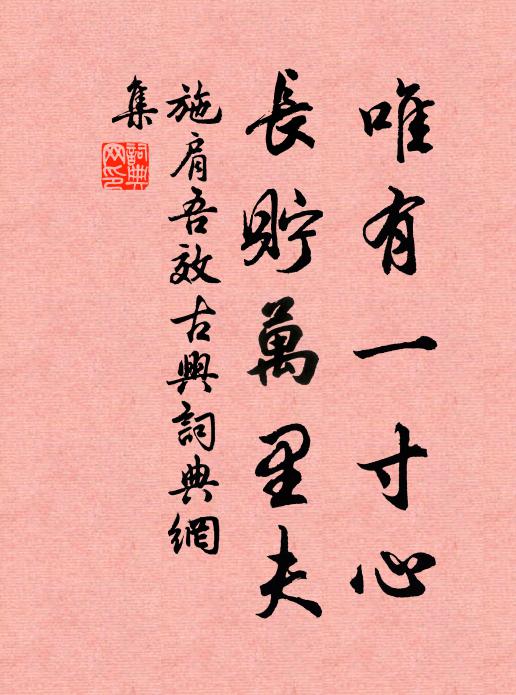 唯有一寸心
長貯萬里夫
施肩吾效古興詞典網
集
詞典
网印